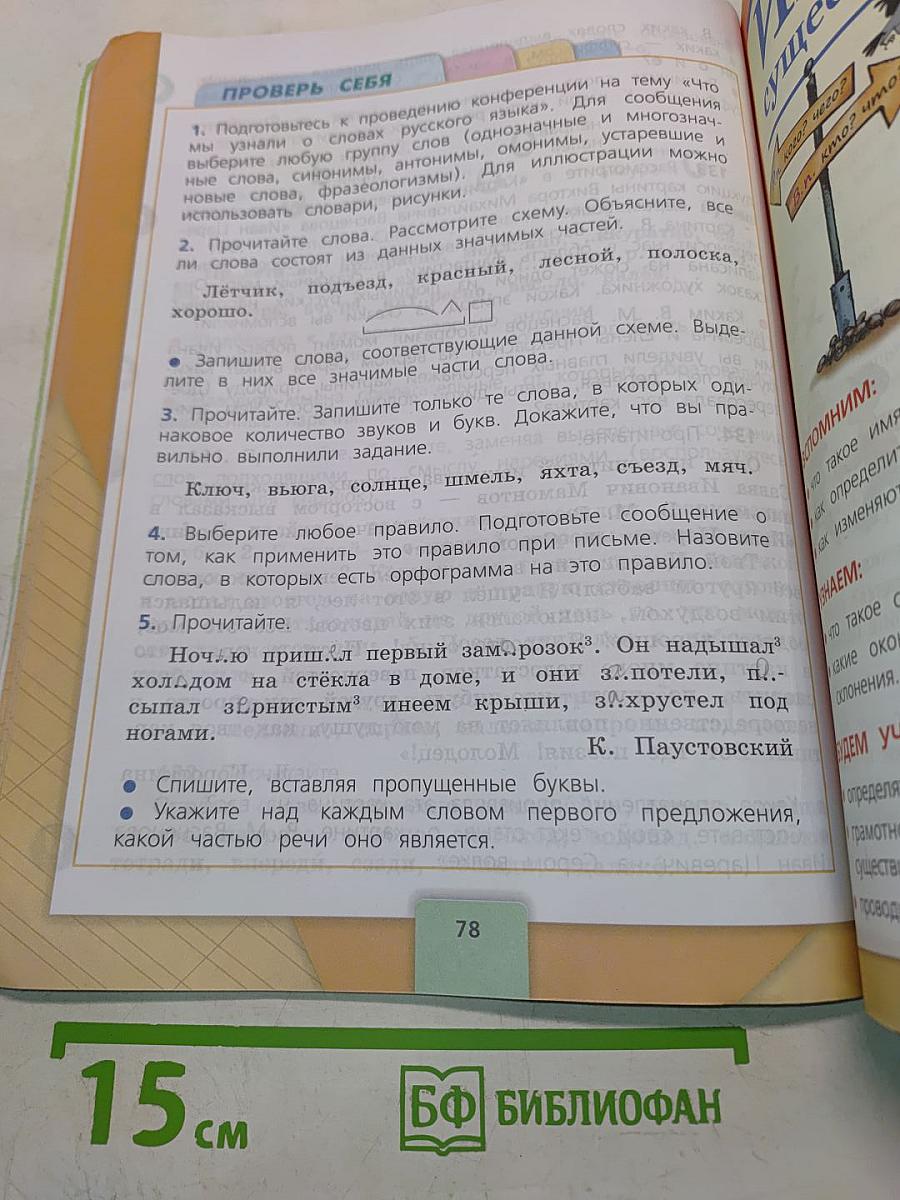 ПРОВЕРЬ СЕБЯ
1. Подготовьтесь к проведению конференции на тему «Что
мы узнали о словах русского языка». Для сообщения
выберите любую группу слов (однозначные и многознач-
ные слова, синонимы, антонимы, омонимы, устаревшие и
новые слова, фразеологизмы). Для иллюстрации можно
использовать словари, рисунки.
2. Прочитайте слова. Рассмотрите схему. Объясните, все
ли слова состоят из данных значимых частей.
Лётчик, подъезд, красный, лесной, полоска,
хорошо.
• Запишите слова, соответствующие данной схеме. Выде-
лите в них все значимые части слова.
3. Прочитайте. Запишите только те слова, в которых оди-
наковое количество звуков и букв. Докажите, что вы пра-
вильно выполнили задание.
Ключ, вьюга, солнце, шмель, яхта, съезд, мяч.
4. Выберите любое правило. Подготовьте сообщение о
том, как применить это правило при письме. Назовите
слова, в которых есть орфограмма на это правило.
5. Прочитайте.
Ноч..ю приш..л первый зам..розок³. Он надышал³
хол..дом на стёкла в доме, и они з..потели, п..-
сыпал з..рнистым³ инеем крыши, з..хрустел под
ногами.
К. Паустовский
• Спишите, вставляя пропущенные буквы.
• Укажите над каждым словом первого предложения,
какой частью речи оно является.
78
сущес
кого? чего?
В.п. кто? что?
ПОМНИМ:
что такое имя
как определит
как изменяют
ЗНАЕМ:
что такое с
какие око
склонения.
БУДЕМ УЧ
определя
грамотно
существи
провод
15 см
БФ БИБЛИОФАН